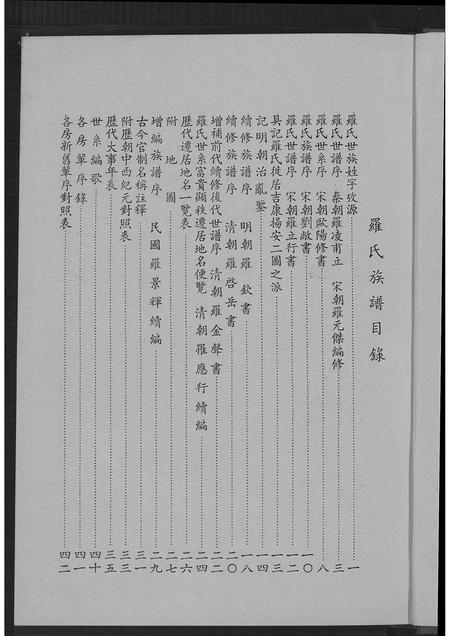 羅氏族譜目錄
羅氏世族姓字攷源……一
羅氏世譜序　秦朝羅凌甫立　宋朝羅元傑編修……三
羅氏世系序　宋朝歐陽修書……八
羅氏族譜序　宋朝劉敞書……一〇
羅氏世譜序　宋朝羅立行書……一二
具記羅氏徙居吉康揚安二圖之派……一三
記明朝治亂鑒……一四
續修族譜序　明朝羅欽書……一八
續修族譜序　清朝羅啓岳書……二〇
增補前代續修後代世譜序　清朝羅金聲書……二二
羅氏世系富貴顯秩遷居地名便覽　清朝羅應行續編……二四
歷代遷居地名一覽表……二六
附地圖……二七
增編族譜序　民國羅景輝續編……二九
古今官制名稱註釋……三一
附歷朝中西紀元對照表……三三
歷代大事年表……三五
世系編歌……四十
各房單序錄……四一
各房新舊單序對照表……四二